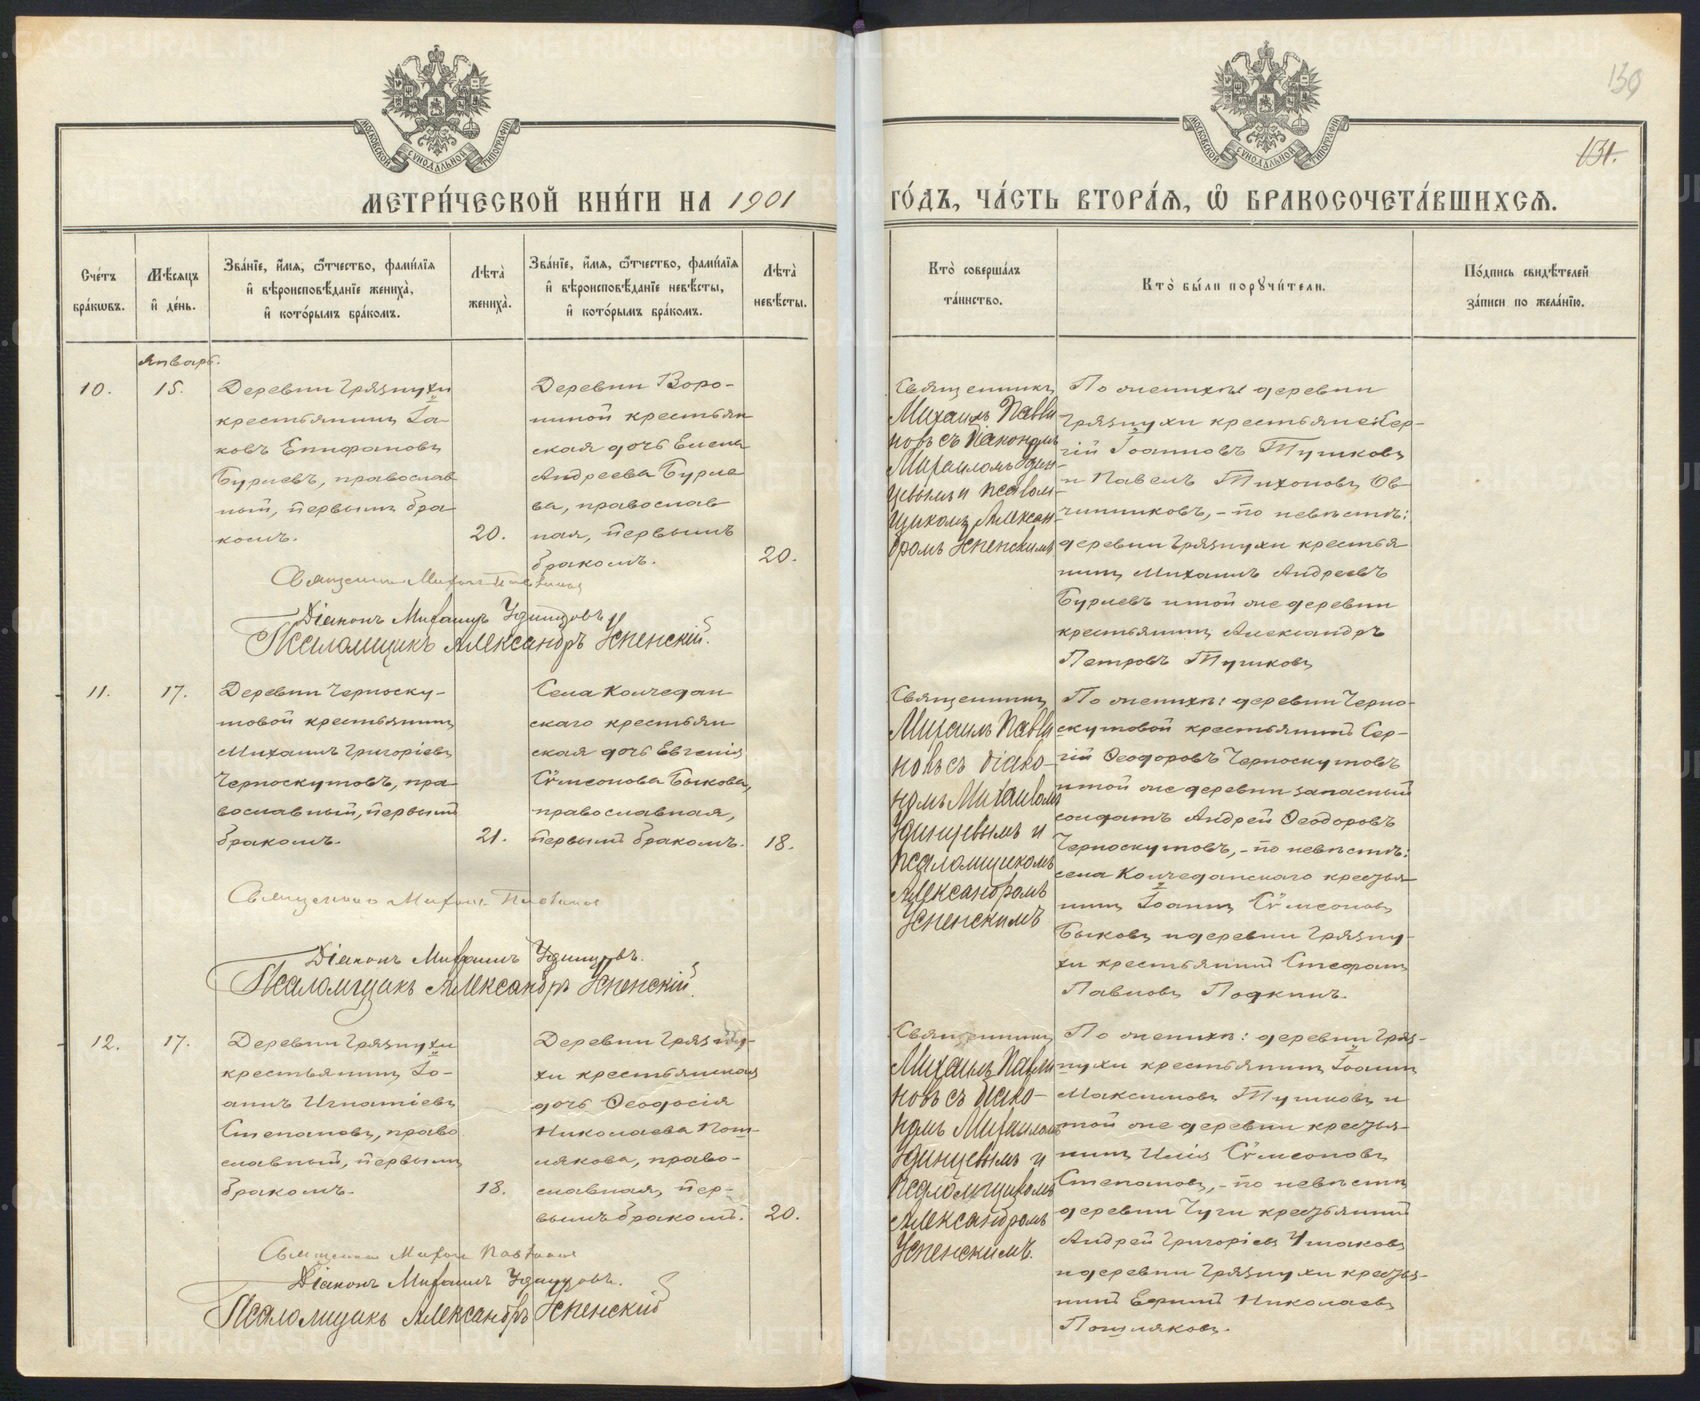 130
131.
МОСКОВСКОЙ СѴНОДАЛЬНОЙ ТИПОГРАФІИ
МОСКОВСКОЙ СѴНОДАЛЬНОЙ ТИПОГРАФІИ
МЕТРИ́ЧЕСКОЙ КНИ́ГИ НА 1901 ГО́ДЪ, ЧА́СТЬ ВТОРА́Я, Ѡ БРАКОСОЧЕТА́ВШИХСѦ.
Сче́тъ бра́кѡвъ.
Мѣ́сѧцъ и҆ де́нь.
Зва́нїе, и҆́мѧ, ѻ҆́тчество, фами́лїѧ и҆ вѣроисповѣ́данїе жениха̀, и҆ кото́рымъ бра́комъ.
Лѣта̀ жениха̀.
Зва́нїе, и҆́мѧ, ѻ҆́тчество, фами́лїѧ и҆ вѣроисповѣ́данїе невѣ́сты, и҆ кото́рымъ бра́комъ.
Лѣта̀ невѣ́сты.
Кто̀ соверша́лъ та́инство.
Кто̀ бы́ли порꙋчи́тели.
По́дпись свидѣ́телей за́писи по жела́нїю.
Январь.
10.
15.
Деревни Грязнухи
крестьянинъ Іа-
ковъ Епифановъ
Бурлевъ, православ
ный, первымъ бра
комъ.
20.
Деревни Воро-
ниной крестьян
ская дочь Елена
Андреева Бурле
ва, православ
ная, первымъ
бракомъ.
20.
Священникъ
Михаилъ Павли
новъ съ діакономъ
Михаиломъ Удин
цевымъ и псалом
щикомъ Алексан
дромъ Успенскимъ
По женихѣ деревни
Грязнухи крестьяне: Сер-
гій Іоанновъ Тушковъ
и Павелъ Тихоновъ Ов-
чинниковъ, - по невѣстѣ:
деревни Грязнухи крестья
нинъ Михаилъ Андреевъ
Бурлевъ и той же деревни
крестьянинъ Александръ
Петровъ Тушковъ
Священникъ Михаилъ Павлиновъ
Діаконъ Михаилъ Удинцовъ
Псаломщикъ Александръ Успенскій.
11.
17.
Деревни Черноску-
товой крестьянинъ
Михаилъ Григоріевъ
Черноскутовъ, пра
вославный, первымъ
бракомъ.
21.
Села Колчедан
скаго крестьян
ская дочь Евгенія
Сѵмеонова Быкова,
православная,
первымъ бракомъ.
18.
Священникъ
Михаилъ Павли
новъ съ діако-
номъ Михаиломъ
Удинцевымъ и
псаломщикомъ
Александромъ
Успенскимъ
По женихѣ: деревни Черно-
скутовой крестьянинъ Сер-
гій Ѳеодоровъ Черноскутовъ
и той же деревни запасный
солдатъ Андрей Ѳеодоровъ
Черноскутовъ, - по невѣстѣ:
села Колчеданскаго кресья
нинъ Іоаннъ Сѵмеоновъ
Быковъ и деревни Грязну-
хи крестьянинъ Стефанъ
Павловъ Подкинъ.
Священникъ Михаилъ Павлиновъ
Діаконъ Михаилъ Удинцовъ.
Псаломщикъ Александръ Успенскій.
12.
17.
Деревни Грязнухи
крестьянинъ Іо-
аннъ Игнатіевъ
Степановъ, право
славный, первымъ
бракомъ.
18.
Деревни Грязну-
хи крестьянская
дочь Ѳеодосія
Николаева Пош-
лякова, право-
славная, пер-
вымъ бракомъ.
20.
Священникъ
Михаилъ Павли
новъ съ діако-
номъ Михаиломъ
Удинцевымъ и
псаломщикомъ
Александромъ
Успенскимъ.
По женихѣ: деревни Гряз-
нухи крестьянинъ Іоаннъ
Максимовъ Тушковъ и
той же деревни кресья-
нинъ Илія Сѵмеоновъ
Степановъ, - по невѣстѣ
деревни Чуги кресьянинъ
Андрей Григоріевъ Ушаковъ
и деревни Грязнухи кресья-
нинъ Ефимъ Николаевъ
Пошляковъ.
Священникъ Михаилъ Павлиновъ
Діаконъ Михаилъ Удинцовъ.
Псаломщикъ Александръ Успенскій
METRIKI.GASO-URAL.RU